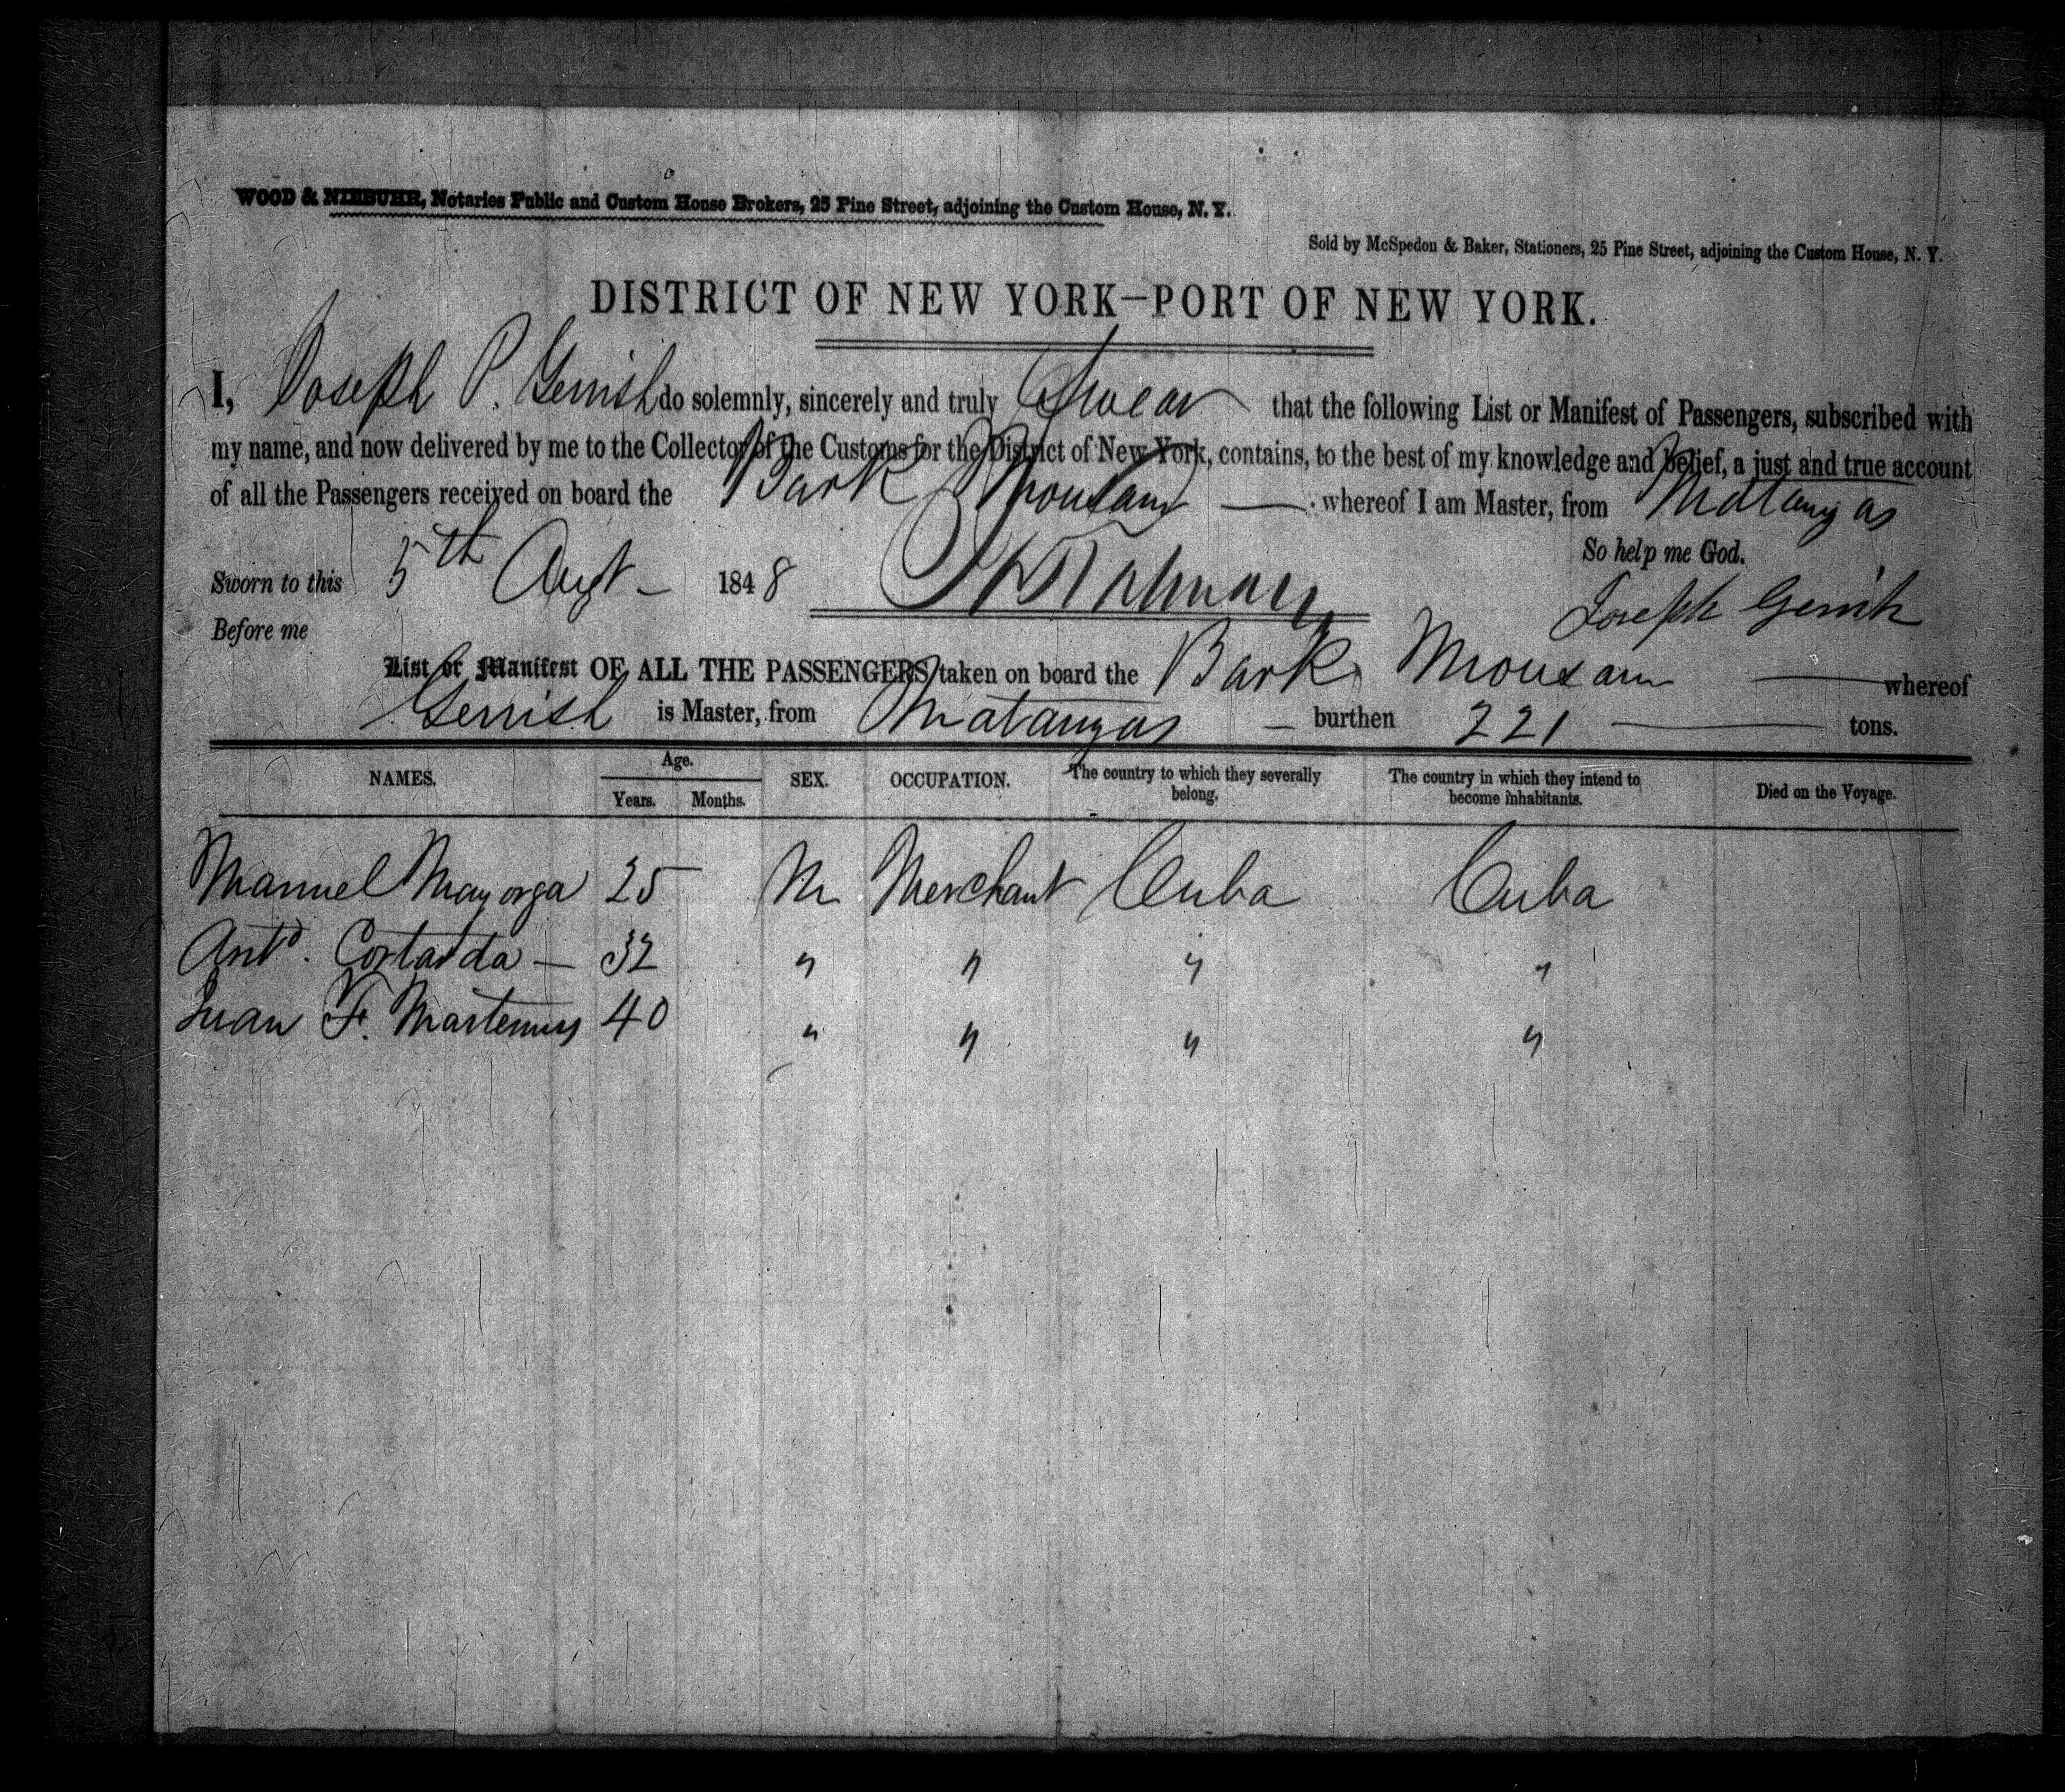 WOOD & NIEBUHR, Notaries Public and Custom House Brokers, 25 Pine Street, adjoining the Custom House, N. Y.
Sold by McSpedon & Baker, Stationers, 25 Pine Street, adjoining the Custom House, N. Y.
DISTRICT OF NEW YORK—PORT OF NEW YORK.
I, Joseph P. Gerrish do solemnly, sincerely and truly Swear that the following List or Manifest of Passengers, subscribed with
my name, and now delivered by me to the Collector of the Customs for the District of New York, contains, to the best of my knowledge and belief, a just and true account
of all the Passengers received on board the Bark Mousam whereof I am Master, from Matanzas
So help me God.
Sworn to this 5th Augt 1848
Joseph Gerrish
Before me
List or Manifest OF ALL THE PASSENGERS taken on board the Bark Mousam whereof
Gerrish is Master, from Matanzas burthen 221 tons.
NAMES. Age. Years. Months. SEX. OCCUPATION. The country to which they severally belong. The country in which they intend to become inhabitants. Died on the Voyage.
Manuel Mayorga 25 M Merchant Cuba Cuba
Anto. Costarda 32 " " " "
Juan F. 40 " " " "